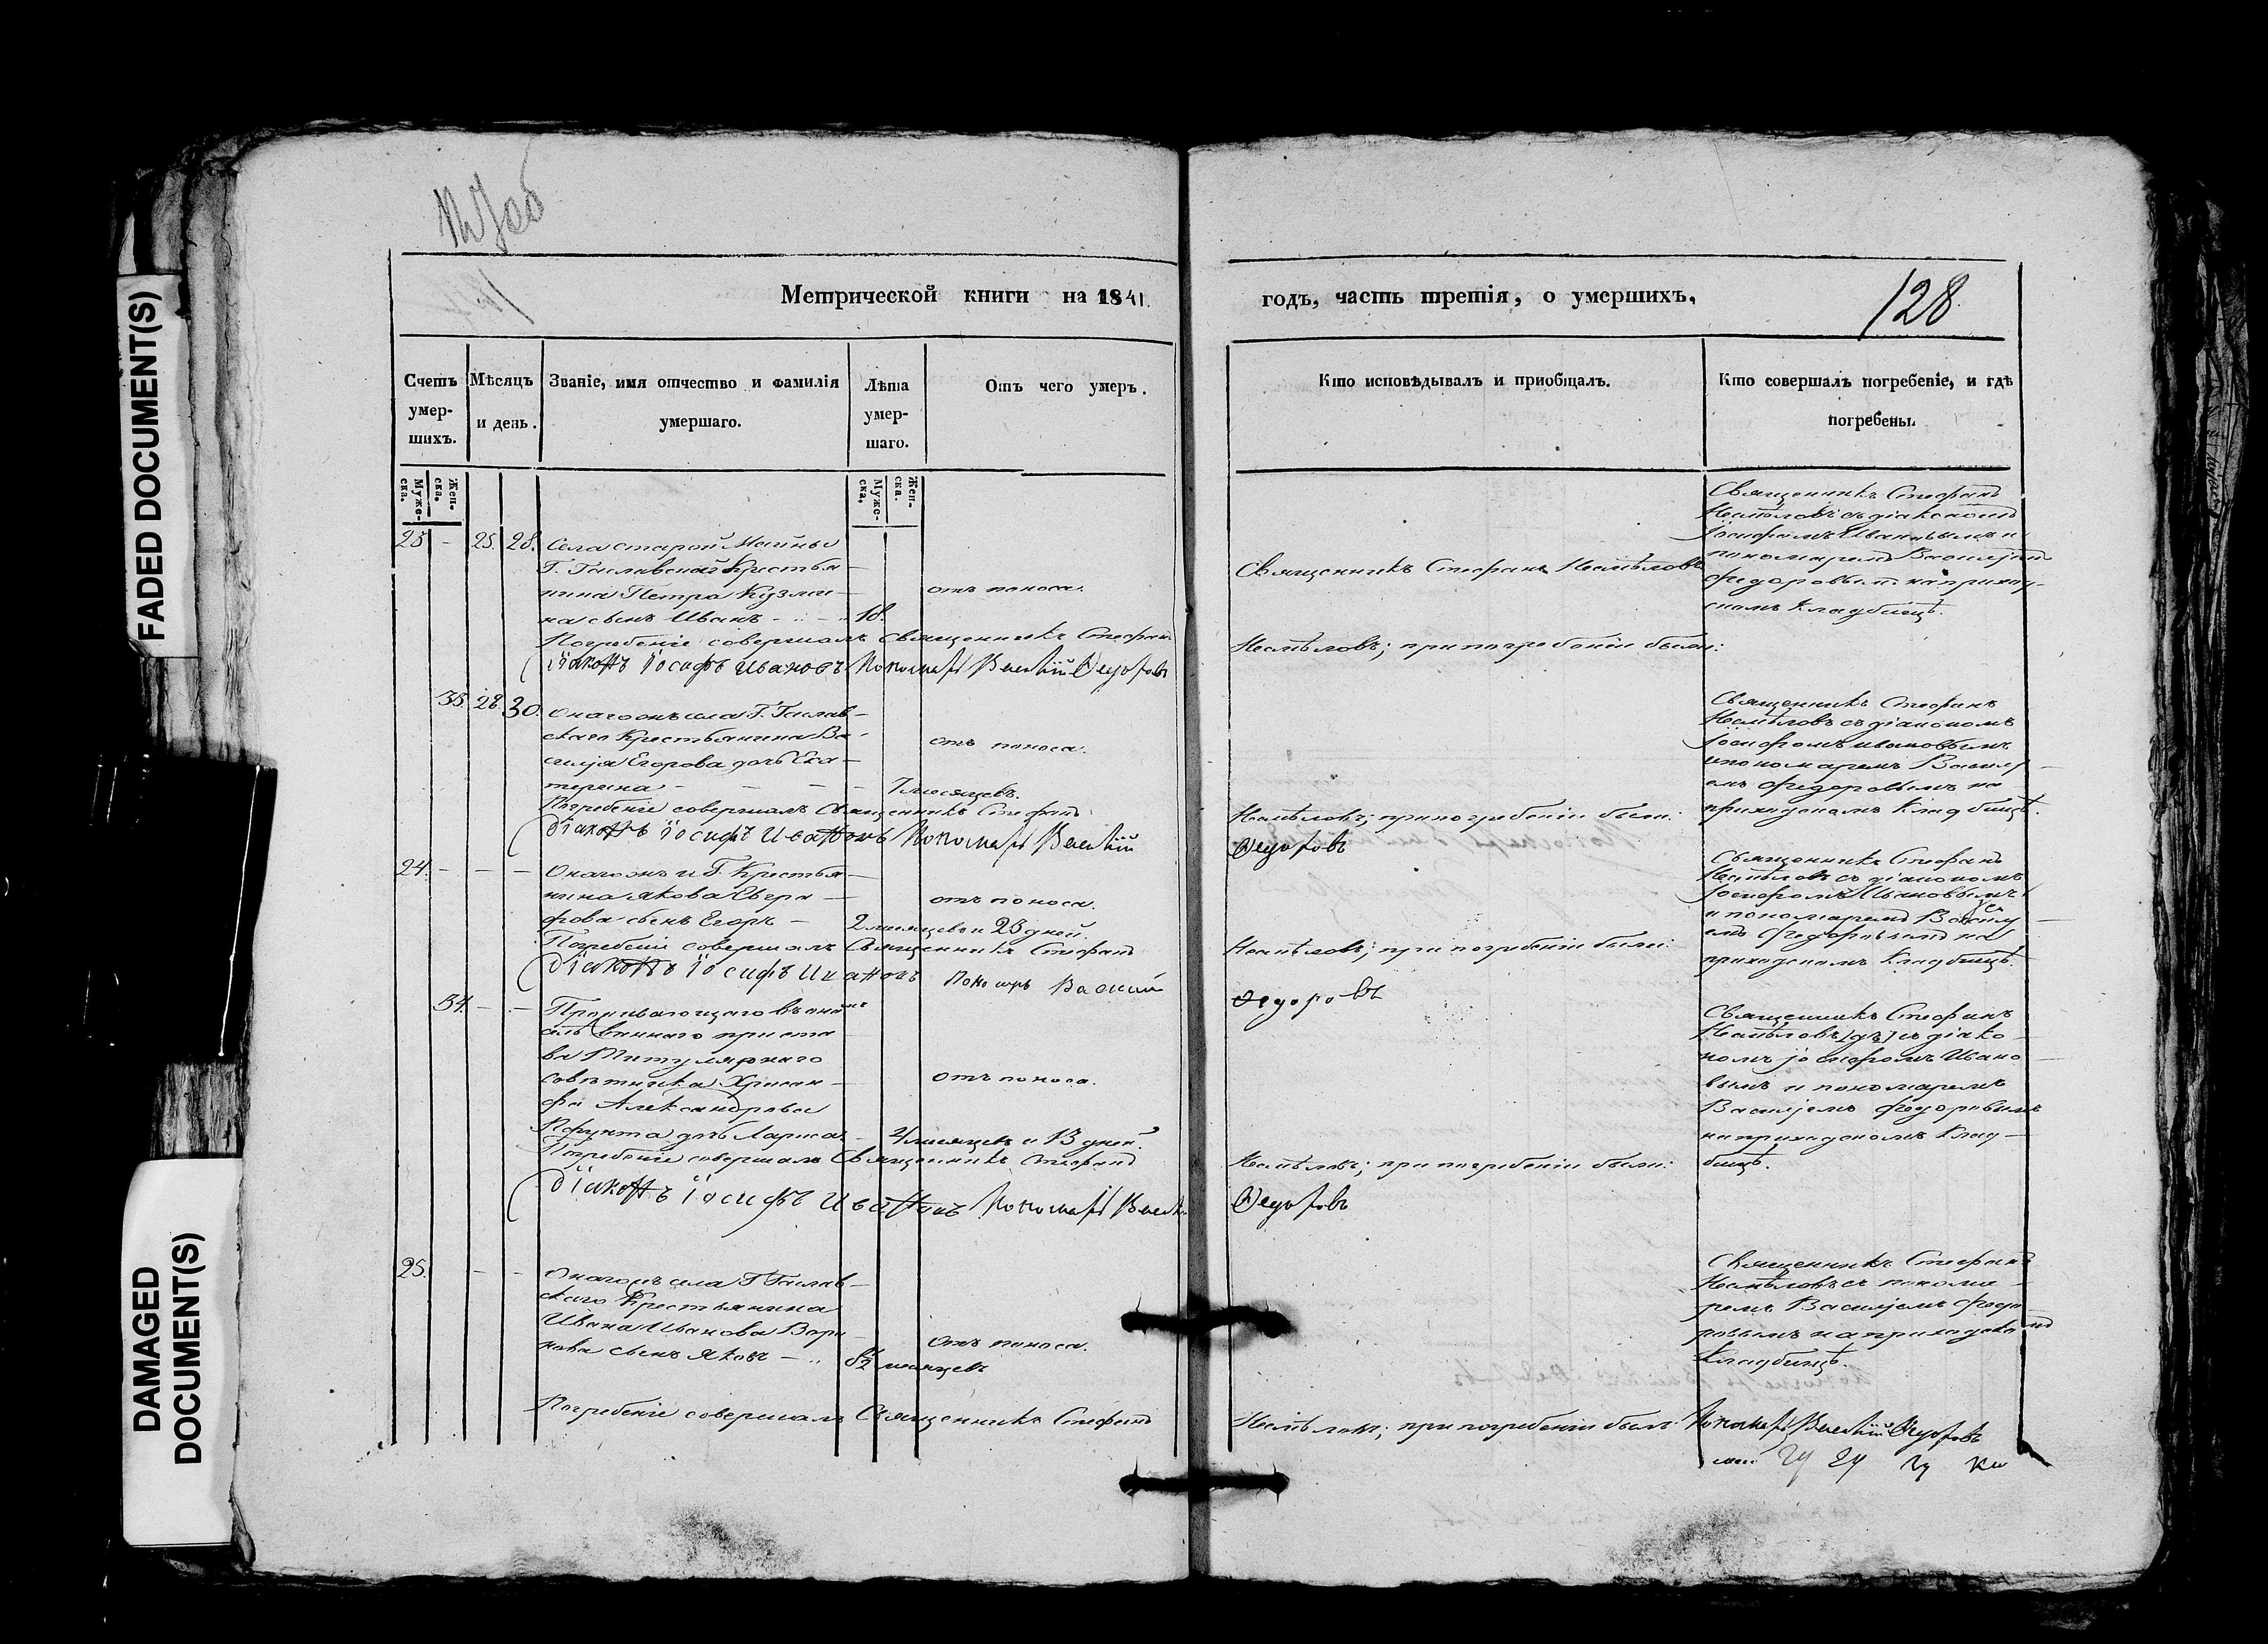 FADED DOCUMENT(S)
DAMAGED
DOCUMENT(S)
Метрической книги на 1841.
годъ, часть третія, о умершихъ,
128
Счетъ умер-шихъ.
Мѣсяцъ и день.
Званіе, имя отчество и фамилія умершаго.
Лѣта умер-шаго.
Отъ чего умеръ.
Кто исповѣдывалъ и приобщалъ.
Кто совершалъ погребеніе, и гдѣ погребены.
Муже-ска.
Жен-ска.
Муже-ска.
Жен-ска.
25. 28. Села старой Майны
Крестья-
нина Петра Кузми-
на сынъ Иванъ 18.
отъ поноса.
Священникъ Стефанъ Немѣловъ
Священникъ Стефанъ
Немѣловъ съ діакономъ
Іосифомъ Ивановымъ и
пономаремъ Василіемъ
Федоровымъ на приход-
скомъ кладбищѣ.
Погребеніе совершалъ Священникъ Стефанъ
Немѣловъ; при погребеніи были:
діаконъ Іосифъ Ивановъ Пономарь Василій Федоровъ
28 30. Онагожъ села Г.
Крестьянина Ва-
силія Егорова дочь Ека-
терина
7 месяцевъ.
отъ поноса.
Священникъ Стефанъ
Немѣловъ съ діакономъ
Іосифомъ Ивановымъ
и пономаремъ Василі-
емъ Федоровымъ на
приходскомъ кладбищѣ.
Погребеніе совершалъ Священникъ Стефанъ
Немѣловъ; при погребеніи были:
діаконъ Іосифъ Ивановъ Пономарь Василій
Федоровъ
24. Онагожъ и Г. Крестья-
нина Якова Евгра-
фова сынъ Егоръ
2 месяцевъ и 23 дней.
отъ поноса.
Священникъ Стефанъ
Немѣловъ съ діакономъ
Іосифомъ Ивановымъ
и пономаремъ Василі-
емъ Федоровымъ на
приходскомъ кладбищѣ.
Погребеніе совершалъ Священникъ Стефанъ
Немѣловъ; при погребеніи были:
діаконъ Іосифъ Ивановъ Пономарь Василій
Федоровъ
34. Проживающаго въ ономъ
селѣ виннаго приста-
ва Титулярнаго
совѣтника Хрисан-
фа Александрова
дочь Лариса
4 месяцевъ и 13 дней.
отъ поноса.
Священникъ Стефанъ
Немѣловъ съ діако-
номъ Іосифомъ Ивано-
вымъ и пономаремъ
Василіемъ Федоровымъ
на приходскомъ клад-
бищѣ.
Погребеніе совершалъ Священникъ Стефанъ
Немѣловъ; при погребеніи были:
діаконъ Іосифъ Ивановъ Пономарь
Федоровъ
25. Онагожъ села Г
Крестьянина
Ивана Иванова
сынъ Яковъ
месяцевъ
отъ поноса.
Священникъ Стефанъ
Немѣловъ съ понома-
ремъ Василіемъ Федо-
ровымъ на приходскомъ
кладбищѣ.
Погребеніе совершалъ Священникъ Стефанъ
Немѣловъ; при погребеніи былъ: Пономарь Василій Федоровъ